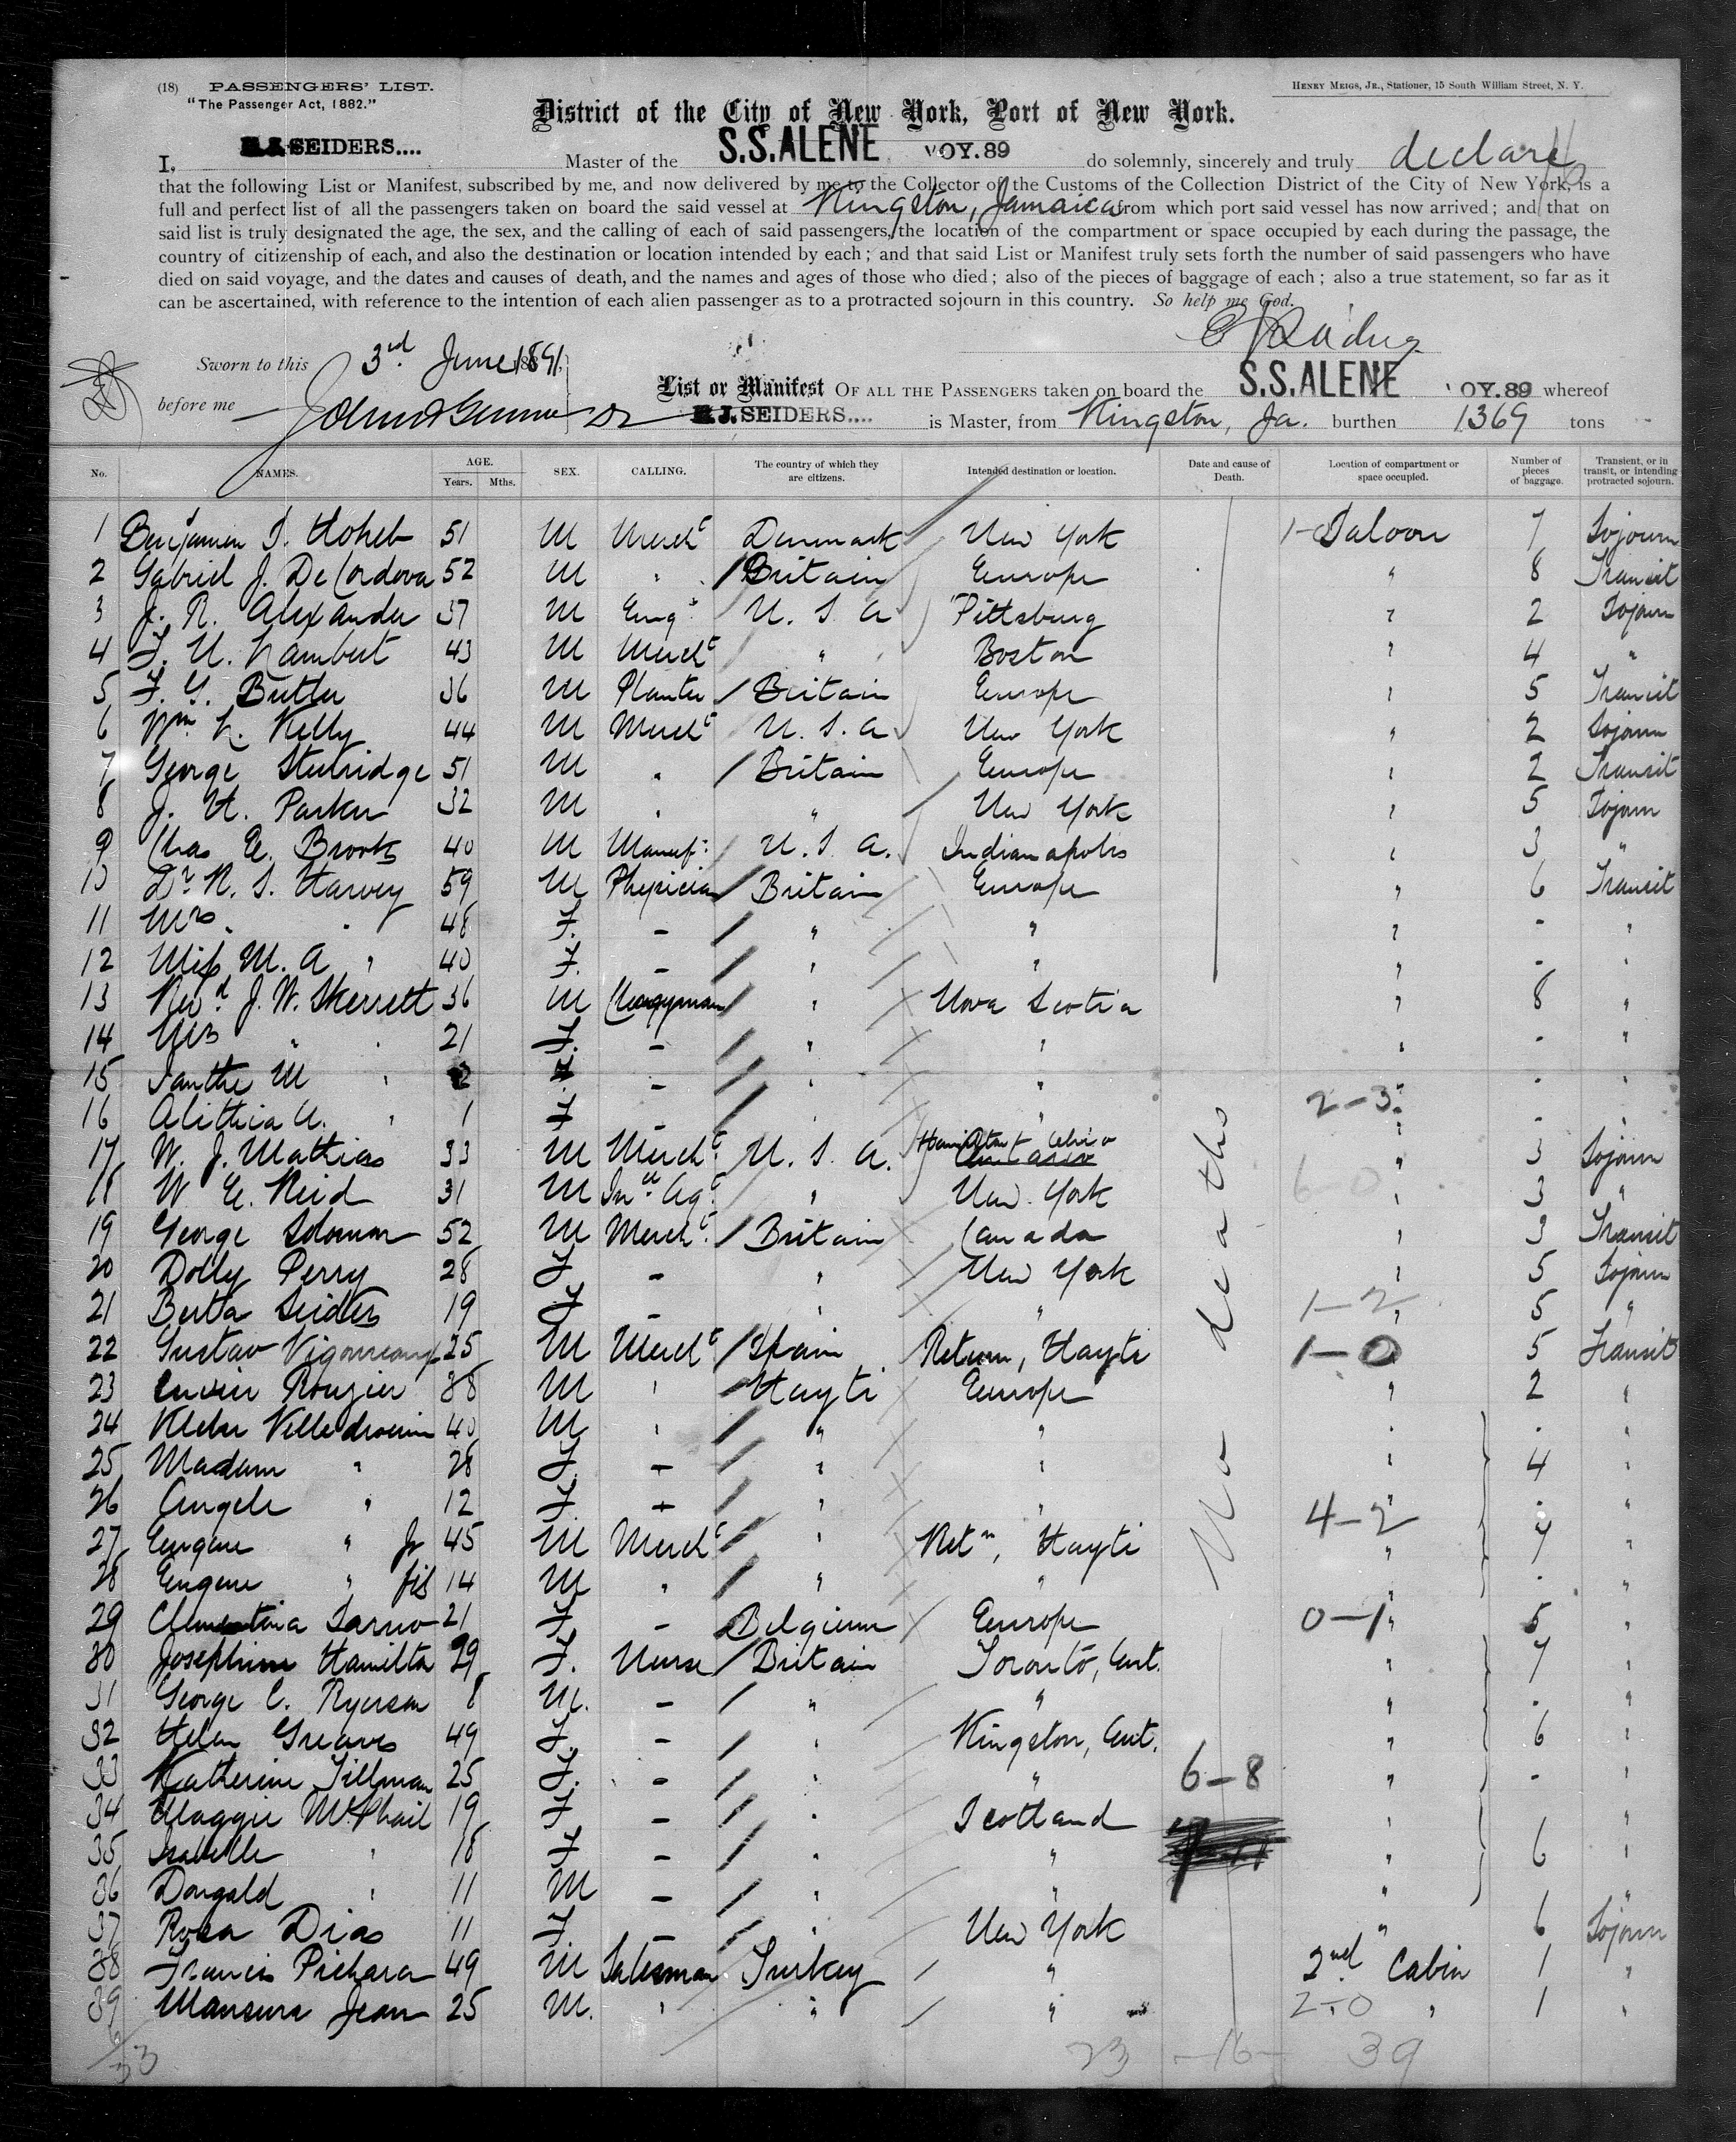 (18) PASSENGERS' LIST.
"The Passenger Act, 1882."
HENRY MEIGS, JR., Stationer, 15 South William Street, N. Y.
District of the City of New York, Port of New York.
I, SEIDERS.... Master of the S.S.ALENE VOY.89 do solemnly, sincerely and truly declare
that the following List or Manifest, subscribed by me, and now delivered by me to the Collector of the Customs of the Collection District of the City of New York, is a
full and perfect list of all the passengers taken on board the said vessel at Kingston, Jamaica from which port said vessel has now arrived; and that on
said list is truly designated the age, the sex, and the calling of each of said passengers, the location of the compartment or space occupied by each during the passage, the
country of citizenship of each, and also the destination or location intended by each; and that said List or Manifest truly sets forth the number of said passengers who have
died on said voyage, and the dates and causes of death, and the names and ages of those who died; also of the pieces of baggage of each; also a true statement, so far as it
can be ascertained, with reference to the intention of each alien passenger as to a protracted sojourn in this country. So help me God.
Sworn to this 3rd June 1891
before me
List or Manifest OF ALL THE PASSENGERS taken on board the S.S.ALENE VOY.89 whereof
J. SEIDERS.... is Master, from Kingston, Ja. burthen 1369 tons
No. NAMES. AGE. Years. Mths. SEX. CALLING. The country of which they are citizens. Intended destination or location. Date and cause of Death. Location of compartment or space occupied. Number of pieces of baggage. Transient, or in transit, or intending protracted sojourn.
1 Benjamin D. Hoheb 51 M Mercht Denmark New York 1-0 Saloon 7 Sojourn
2 Gabriel J. DeCordova 52 M " Britain Europe " 8 Transit
3 J. R. Alexander 37 M Engr U. S. A Pittsburg " 2 Sojourn
4 Lambert 43 M Mercht " Boston " 4 "
5 F. G. Butler 36 M Planter Britain Europe " 5 Transit
6 Wm. Kelly 44 M Mercht U. S. A New York " 2 Sojourn
7 George Stulridge 51 M " Britain Europe " 2 Transit
8 J. H. Parker 32 M " " New York " 5 Sojourn
9 Chas E. Brooks 40 M Manuf: U. S. A. Indianapolis " 3 "
10 Dr N. S. Harvey 59 M Physician Britain Europe " 6 Transit
11 Mrs " 48 F. - " " " - "
12 Miss M. A " 40 F. - " " " - "
13 Revd J. W. Skerrett 36 M Clergyman " Nova Scotia " 8 "
14 Mrs " 21 F. - " " " - "
15 Ianthe M " 2 F. - " " " - "
16 Alithia A. " 1 F - " " 2-3 " - "
17 W. J. Mathias 33 M Mercht U. S. A. Ohio " 3 Sojourn
18 W. E. Reid 31 M Ince Agt " New York 6-0 " 3 "
19 George Solomon 52 M Mercht Britain Canada " 3 Transit
20 Dolly Perry 28 F - " New York " 5 Sojourn
21 Berta Seiders 19 F - " " 1-2 " 5 "
22 Gustav 25 M Mercht Spain Return, Hayti 1-0 5 Transit
23 Rouzier 38 M " Hayti Europe " 2 "
24 Villedrouin 40 M " " " " - "
25 Madam " 28 F. - " " " 4 "
26 Angele " 12 F. - " " 4-2 " - "
27 Eugene " Jr 45 M Mercht " Retn, Hayti " 7 "
28 Eugene " fils 14 M " " " " - "
29 Clementina 21 F - Belgium Europe 0-1 " 5 "
30 Josephine Hamilton 29 F. Nurse Britain Toronto, Ont. " 7 "
31 George C. Ryerson 8 M. - " " " - "
32 Helen Greaves 49 F. - " Kingston, Ont. " 6 "
33 Katherine Tillman 25 F. - " " 6-8 " - "
34 Maggie McPhail 19 F - " Scotland " "
35 Isabelle " 18 F - " " " 6 "
36 Dougald " 11 M - " " " "
37 Rosa Dias 11 F. - " New York " 6 Sojourn
38 Francis Pichara 49 M Salesman Turkey " 2nd Cabin 1 "
39 Mansura Jean 25 M. " " " 2-0 " 1 "
No deaths
33 23 -16- 39